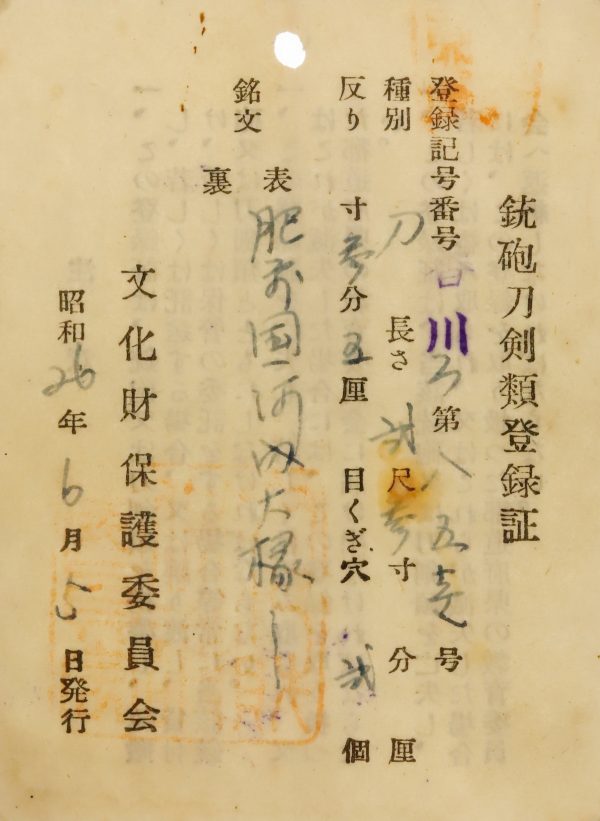 銃砲刀剣類登録証
登録記号番号 香川ろ第八五壱号
種別 刀 長さ 弐尺参寸 分 厘
反り 寸参分五厘 目くぎ穴 弐個
銘文 表 肥前国河内大掾
裏
文化財保護委員会
昭和26年6月5日発行